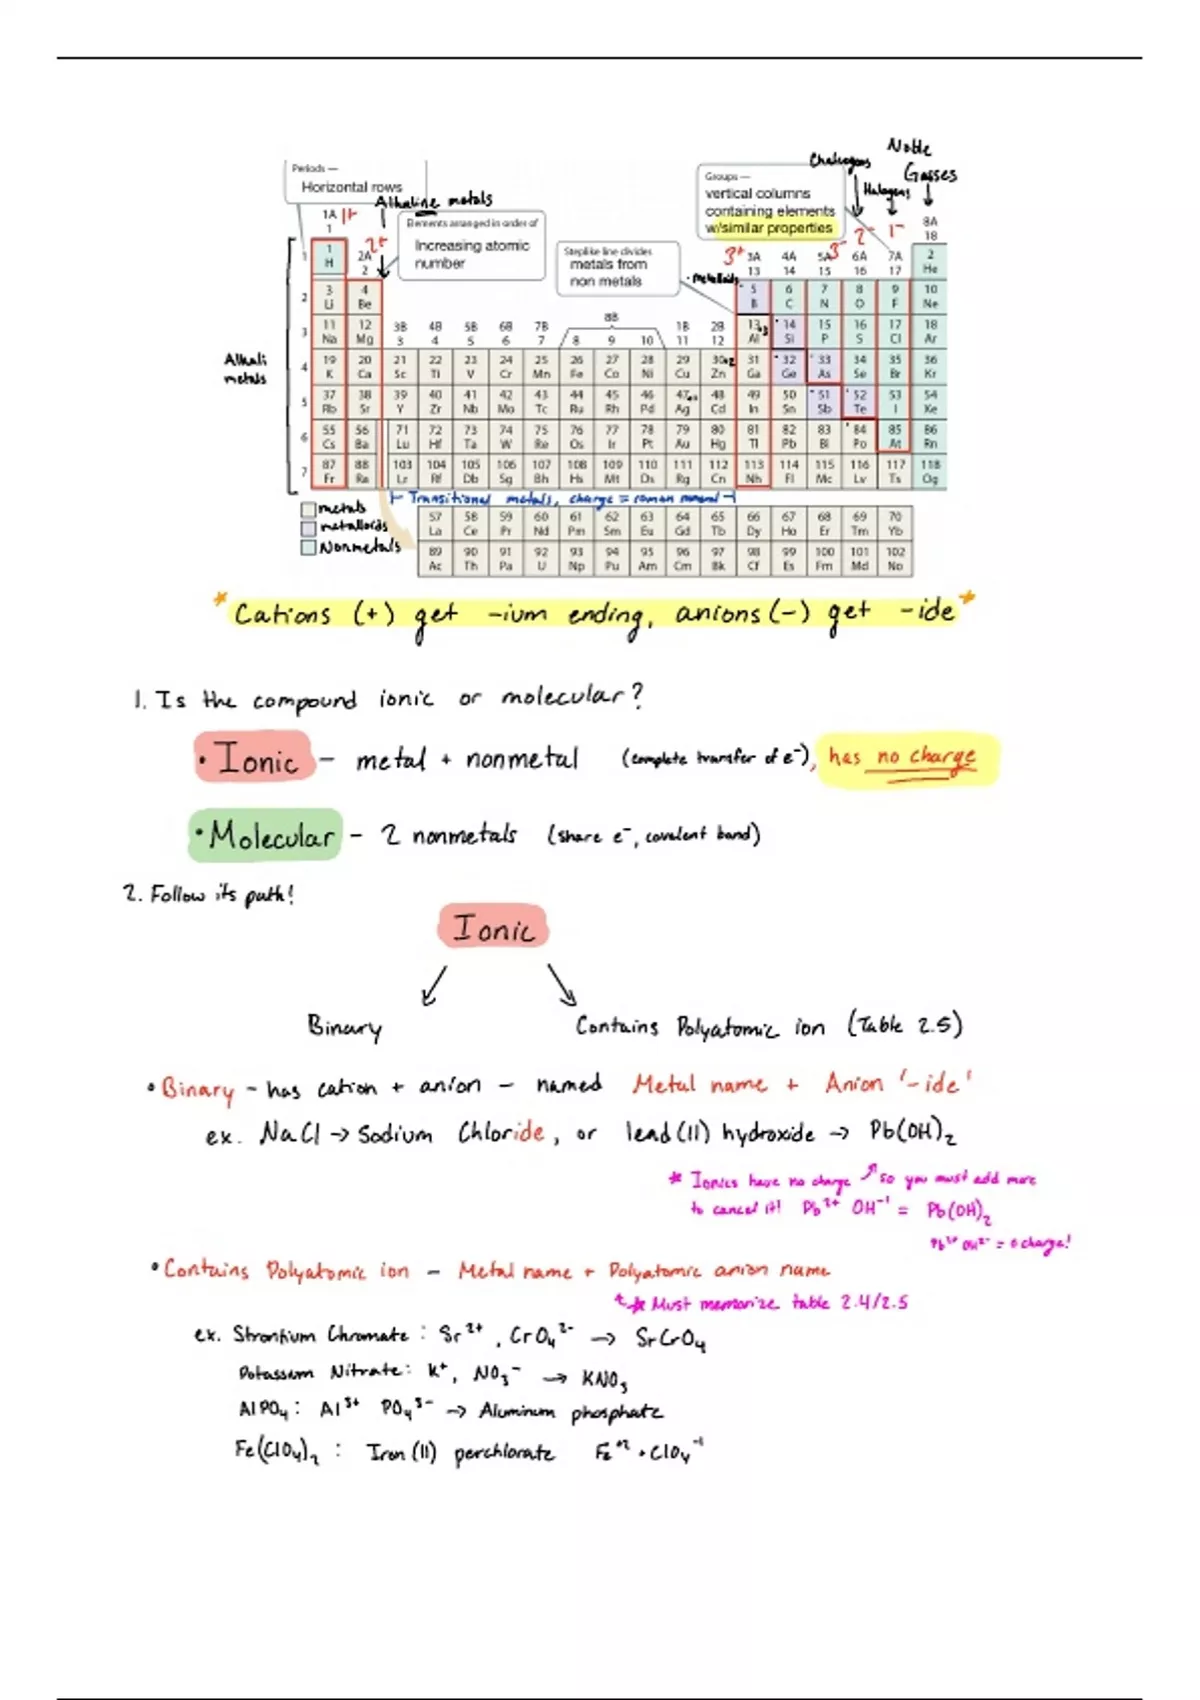 Noble
Chalcogens
Gasses
Halogens
Periods —
Horizontal rows
Alkaline metals
Groups —
vertical columns
containing elements
w/similar properties
Elements arranged in order of
Increasing atomic
number
Steplike line divides
metals from
non metals
metalloids
1A 1+
1
2+
2A
2
3B 4B 5B 6B 7B 8B 1B 2B
3 4 5 6 7 8 9 10 11 12
3+ 3A 4A 5A 3- 6A 2- 7A 1- 8A
13 14 15 16 17 18
1 1 2
H He
2 3 4 5 6 7 8 9 10
Li Be B C N O F Ne
3 11 12 13 +3 14 15 16 17 18
Na Mg Al Si P S Cl Ar
Alkali
metals
4 19 20 21 22 23 24 25 26 27 28 29 30 +2 31 32 33 34 35 36
K Ca Sc Ti V Cr Mn Fe Co Ni Cu Zn Ga Ge As Se Br Kr
5 37 38 39 40 41 42 43 44 45 46 47 48 49 50 51 52 53 54
Rb Sr Y Zr Nb Mo Tc Ru Rh Pd Ag Cd In Sn Sb Te I Xe
6 55 56 71 72 73 74 75 76 77 78 79 80 81 82 83 84 85 86
Cs Ba Lu Hf Ta W Re Os Ir Pt Au Hg Tl Pb Bi Po At Rn
7 87 88 103 104 105 106 107 108 109 110 111 112 113 114 115 116 117 118
Fr Ra Lr Rf Db Sg Bh Hs Mt Ds Rg Cn Nh Fl Mc Lv Ts Og
Transitional metals, charge = roman numeral
metals
metalloids
Nonmetals
57 58 59 60 61 62 63 64 65 66 67 68 69 70
La Ce Pr Nd Pm Sm Eu Gd Tb Dy Ho Er Tm Yb
89 90 91 92 93 94 95 96 97 98 99 100 101 102
Ac Th Pa U Np Pu Am Cm Bk Cf Es Fm Md No
* Cations (+) get -ium ending, anions (-) get -ide *
1. Is the compound ionic or molecular?
• Ionic – metal + nonmetal (complete transfer of e⁻), has no charge
• Molecular – 2 nonmetals (share e⁻, covalent bond)
2. Follow its path!
Ionic
Binary Contains Polyatomic ion (Table 2.5)
• Binary – has cation + anion – named Metal name + Anion '-ide'
ex. NaCl → Sodium Chloride, or lead (II) hydroxide → Pb(OH)₂
* Ionics have no charge ↗ so you must add more
to cancel it! Pb²⁺ OH⁻¹ = Pb(OH)₂
Pb²⁺ OH²⁻ = 0 charge!
• Contains Polyatomic ion – Metal name + Polyatomic anion name
** Must memorize table 2.4/2.5
ex. Strontium Chromate: Sr²⁺, CrO₄²⁻ → SrCrO₄
Potassium Nitrate: K⁺, NO₃⁻ → KNO₃
AlPO₄: Al³⁺ PO₄³⁻ → Aluminum phosphate
Fe(ClO₄)₂: Iron (II) perchlorate Fe⁺² + ClO₄⁻¹